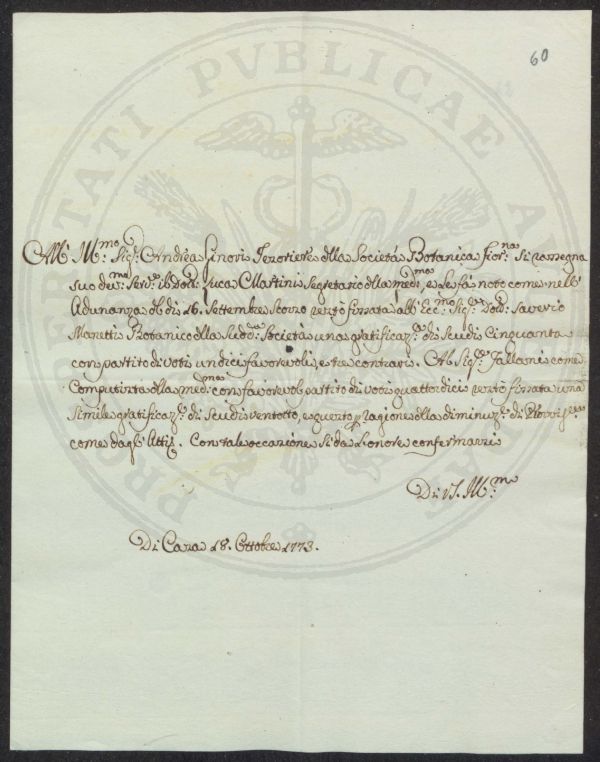 60
All' Ill.mo Sig.r Andrea Ginori Tesoriere della Società Botanica Fior.na Si rassegna
Suo dev.mo Serv.e il Dott. Luca Martini Segretario della med.ma, e Le fà noto come nell'
Adunanza del dì 16. Settembre Scorso restò fissata all' Ecc.mo Sig.r Dott. Saverio
Manetti Botanico della Sud.a Società una gratificaz.e di Scudi Cinquanta
con partito di voti undici favorevoli, e tre contrarj. Al Sig.r Fallani come
Computista della med.ma con favorevol partito di voti quattordici restò fissata una
Simile gratificaz.e di Scudi ventotto, e questo p ragione della diminuz.e di
come dagl' Atti. Con tale occasione Si dà L'onore confermarsi
Di V.S. Ill.ma
Di Casa 18. Ottobre 1773.
PROSPERITATI PVBLICAE